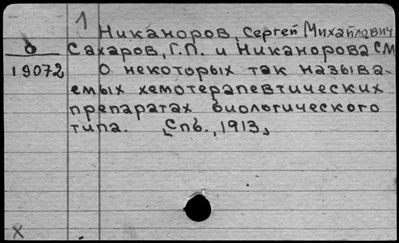 1
Никаноров, Сергей Михайлович
О Сахаров, Г.П. и Никанорова С.М.
19072 О некоторых так называ-
емых хемотерапевтических
препаратах биологического
типа. [Спб., 1913]
X